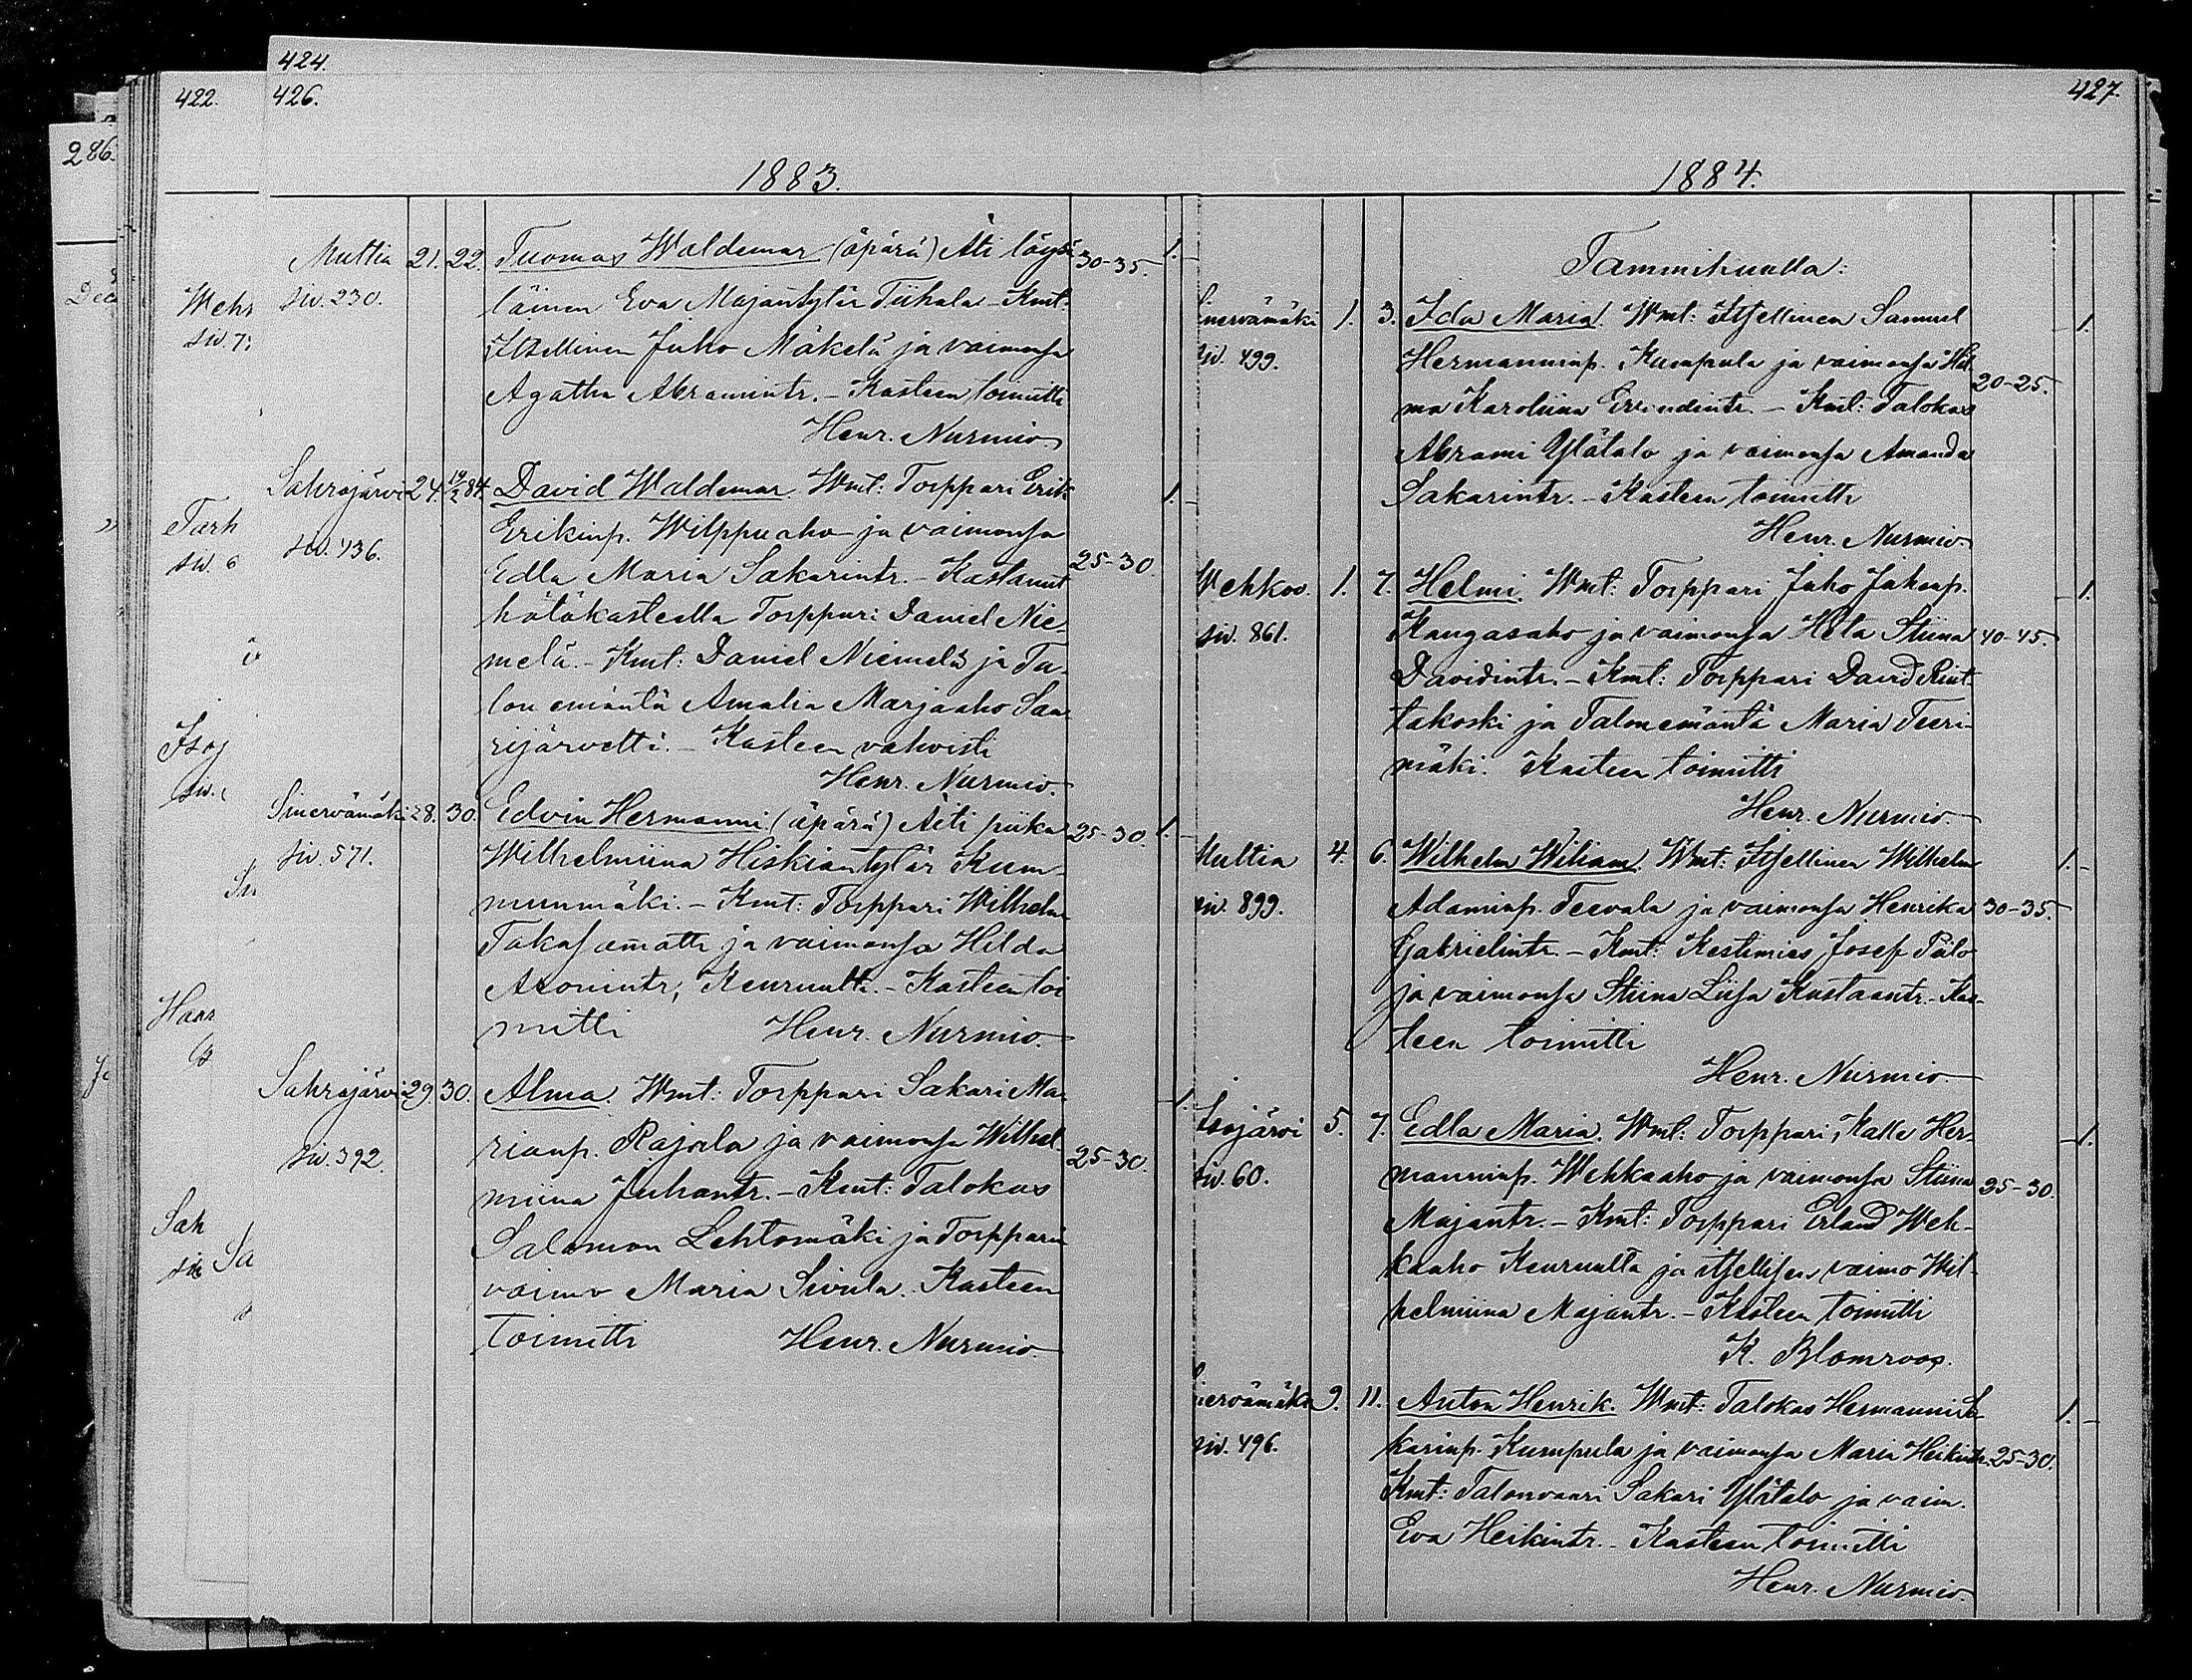 424.
422. 426.
286.
1883.
Multia 21. 22. Tuomas Waldemar (äpärä) Äti löysä 30-35. 1.
siv. 230. läinen Eva Majantytär Tiihala - Kmt:
Itsellinen Juho Mäkelä ja vaimonsa
Agatha Abramintr. - Kasteen toimitti
Henr. Nurmio.
Sahrajärvi 24. 19/2 84. David Waldemar. Wmt: Torppari Erik 1.
siv. 436. Erikinp. Wilppuaho ja vaimonsa
Edla Maria Sakarintr. - Kastanut 25-30.
hätäkasteella Torppari Daniel Nie-
melä. - Kmt: Daniel Niemelä ja Ta-
lon emäntä Amalia Marjaaho Saa-
rijärveltä. - Kasteen vahvisti
Henr. Nurmio.
Sinervämäki 28. 30. Edvin Hermanni (äpärä) Äiti piika 25-30. 1.
siv. 571. Wilhelmiina Hiskiantytär Kum-
munmäki. - Kmt: Torppari Wilhelm
ja vaimonsa Hilda
Keuruulta. - Kasteen toi
mitti Henr. Nurmio.
Sahrajärvi 29. 30. Alma. Wmt: Torppari Sakari Ma- 1.
siv. 392. rianp. Rajala ja vaimonsa Wilhel- 25-30.
miina Juhantr. - Kmt: Talokas
Salomon Lehtomäki ja Torpparin
vaimo Maria Sivula. Kasteen
toimitti Henr. Nurmio.
427.
1884.
Tammikuulla:
Sinervämäki 1. 3. Ida Maria. Wmt: Itsellinen Samuel 1.
siv. 499. Hermanninp. Kumpula ja vaimonsa Hil- 20-25.
ma Karoliina Erlandintr. - Kmt: Talokas
Abrami Ylätalo ja vaimonsa Amanda
Sakarintr. - Kasteen toimitti
Henr. Nurmio.
Wehkoo. 1. 7. Helmi. Wmt: Torppari Juho Juhonp. 1.
siv. 861. Kangasaho ja vaimonsa Stiina 40-45.
Davidintr. - Kmt: Torppari David Rint-
takoski ja Talonemäntä Maria Teeri-
mäki. Kasteen toimitti
Henr. Nurmio.
Multia 4. 6. Wilhelm Wiliam. Wmt: Itsellinen Wilhelm 1.
siv. 899. Adaminp. Teevala ja vaimonsa Henrika 30-35.
Gabrielintr. - Kmt: Kestimies Josef Piilo
ja vaimonsa Stiina Liisa Kustaantr. - Kas-
teen toimitti
Henr. Nurmio.
Isojärvi 5. 7. Edla Maria. Wmt: Torppari, Kalle Her- 1.
siv. 60. manninp. Wehkaaho ja vaimonsa Stiina 25-30.
Majantr. - Kmt: Torppari Erland Weh-
kaaho Keuruulta ja itsellisen vaimo Wil-
helmiina Majantr. - Kasteen toimitti
K. Blomroos.
Sinervämäki 9. 11. Anton Henrik. Wmt: Talokas Hermanni Sa- 1.
siv. 496. karinp. Kumpula ja vaimonsa Maria Heikintr. 25-30.
Kmt: Talonvaari Sakari Ylätalo ja vaim.
Eva Heikintr. - Kasteen toimitti
Henr. Nurmio.